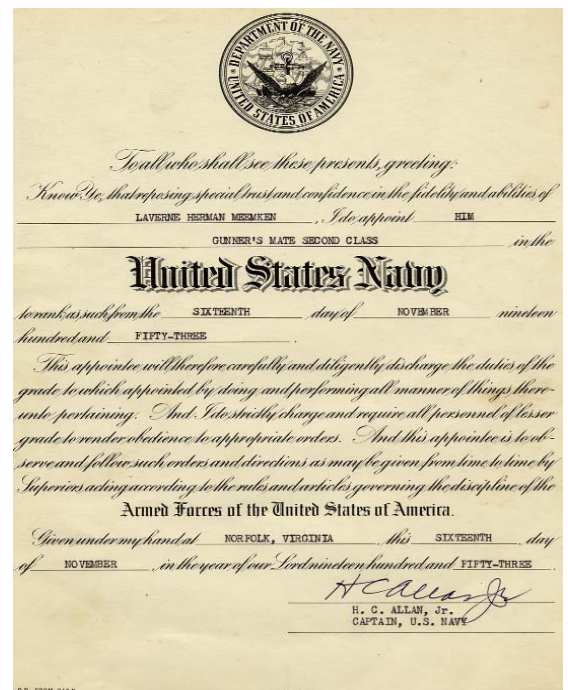 DEPARTMENT OF THE NAVY
UNITED STATES OF AMERICA
To all who shall see these presents, greeting:
Know Ye, that reposing special trust and confidence in the fidelity and abilities of
LAVERNE HERMAN MEEMKEN, I do appoint HIM
GUNNER'S MATE SECOND CLASS in the
United States Navy
to rank as such from the SIXTEENTH day of NOVEMBER nineteen
hundred and FIFTY-THREE.
This appointee will therefore carefully and diligently discharge the duties of the
grade to which appointed by doing and performing all manner of things there-
unto pertaining. And I do strictly charge and require all personnel of lesser
grade to render obedience to appropriate orders. And this appointee is to ob-
serve and follow such orders and directions as may be given from time to time by
Superiors acting according to the rules and articles governing the discipline of the
Armed Forces of the United States of America.
Given under my hand at NORFOLK, VIRGINIA this SIXTEENTH day
of NOVEMBER, in the year of our Lord nineteen hundred and FIFTY-THREE.
H C Allan Jr
H. C. ALLAN, Jr.
CAPTAIN, U.S. NAVY